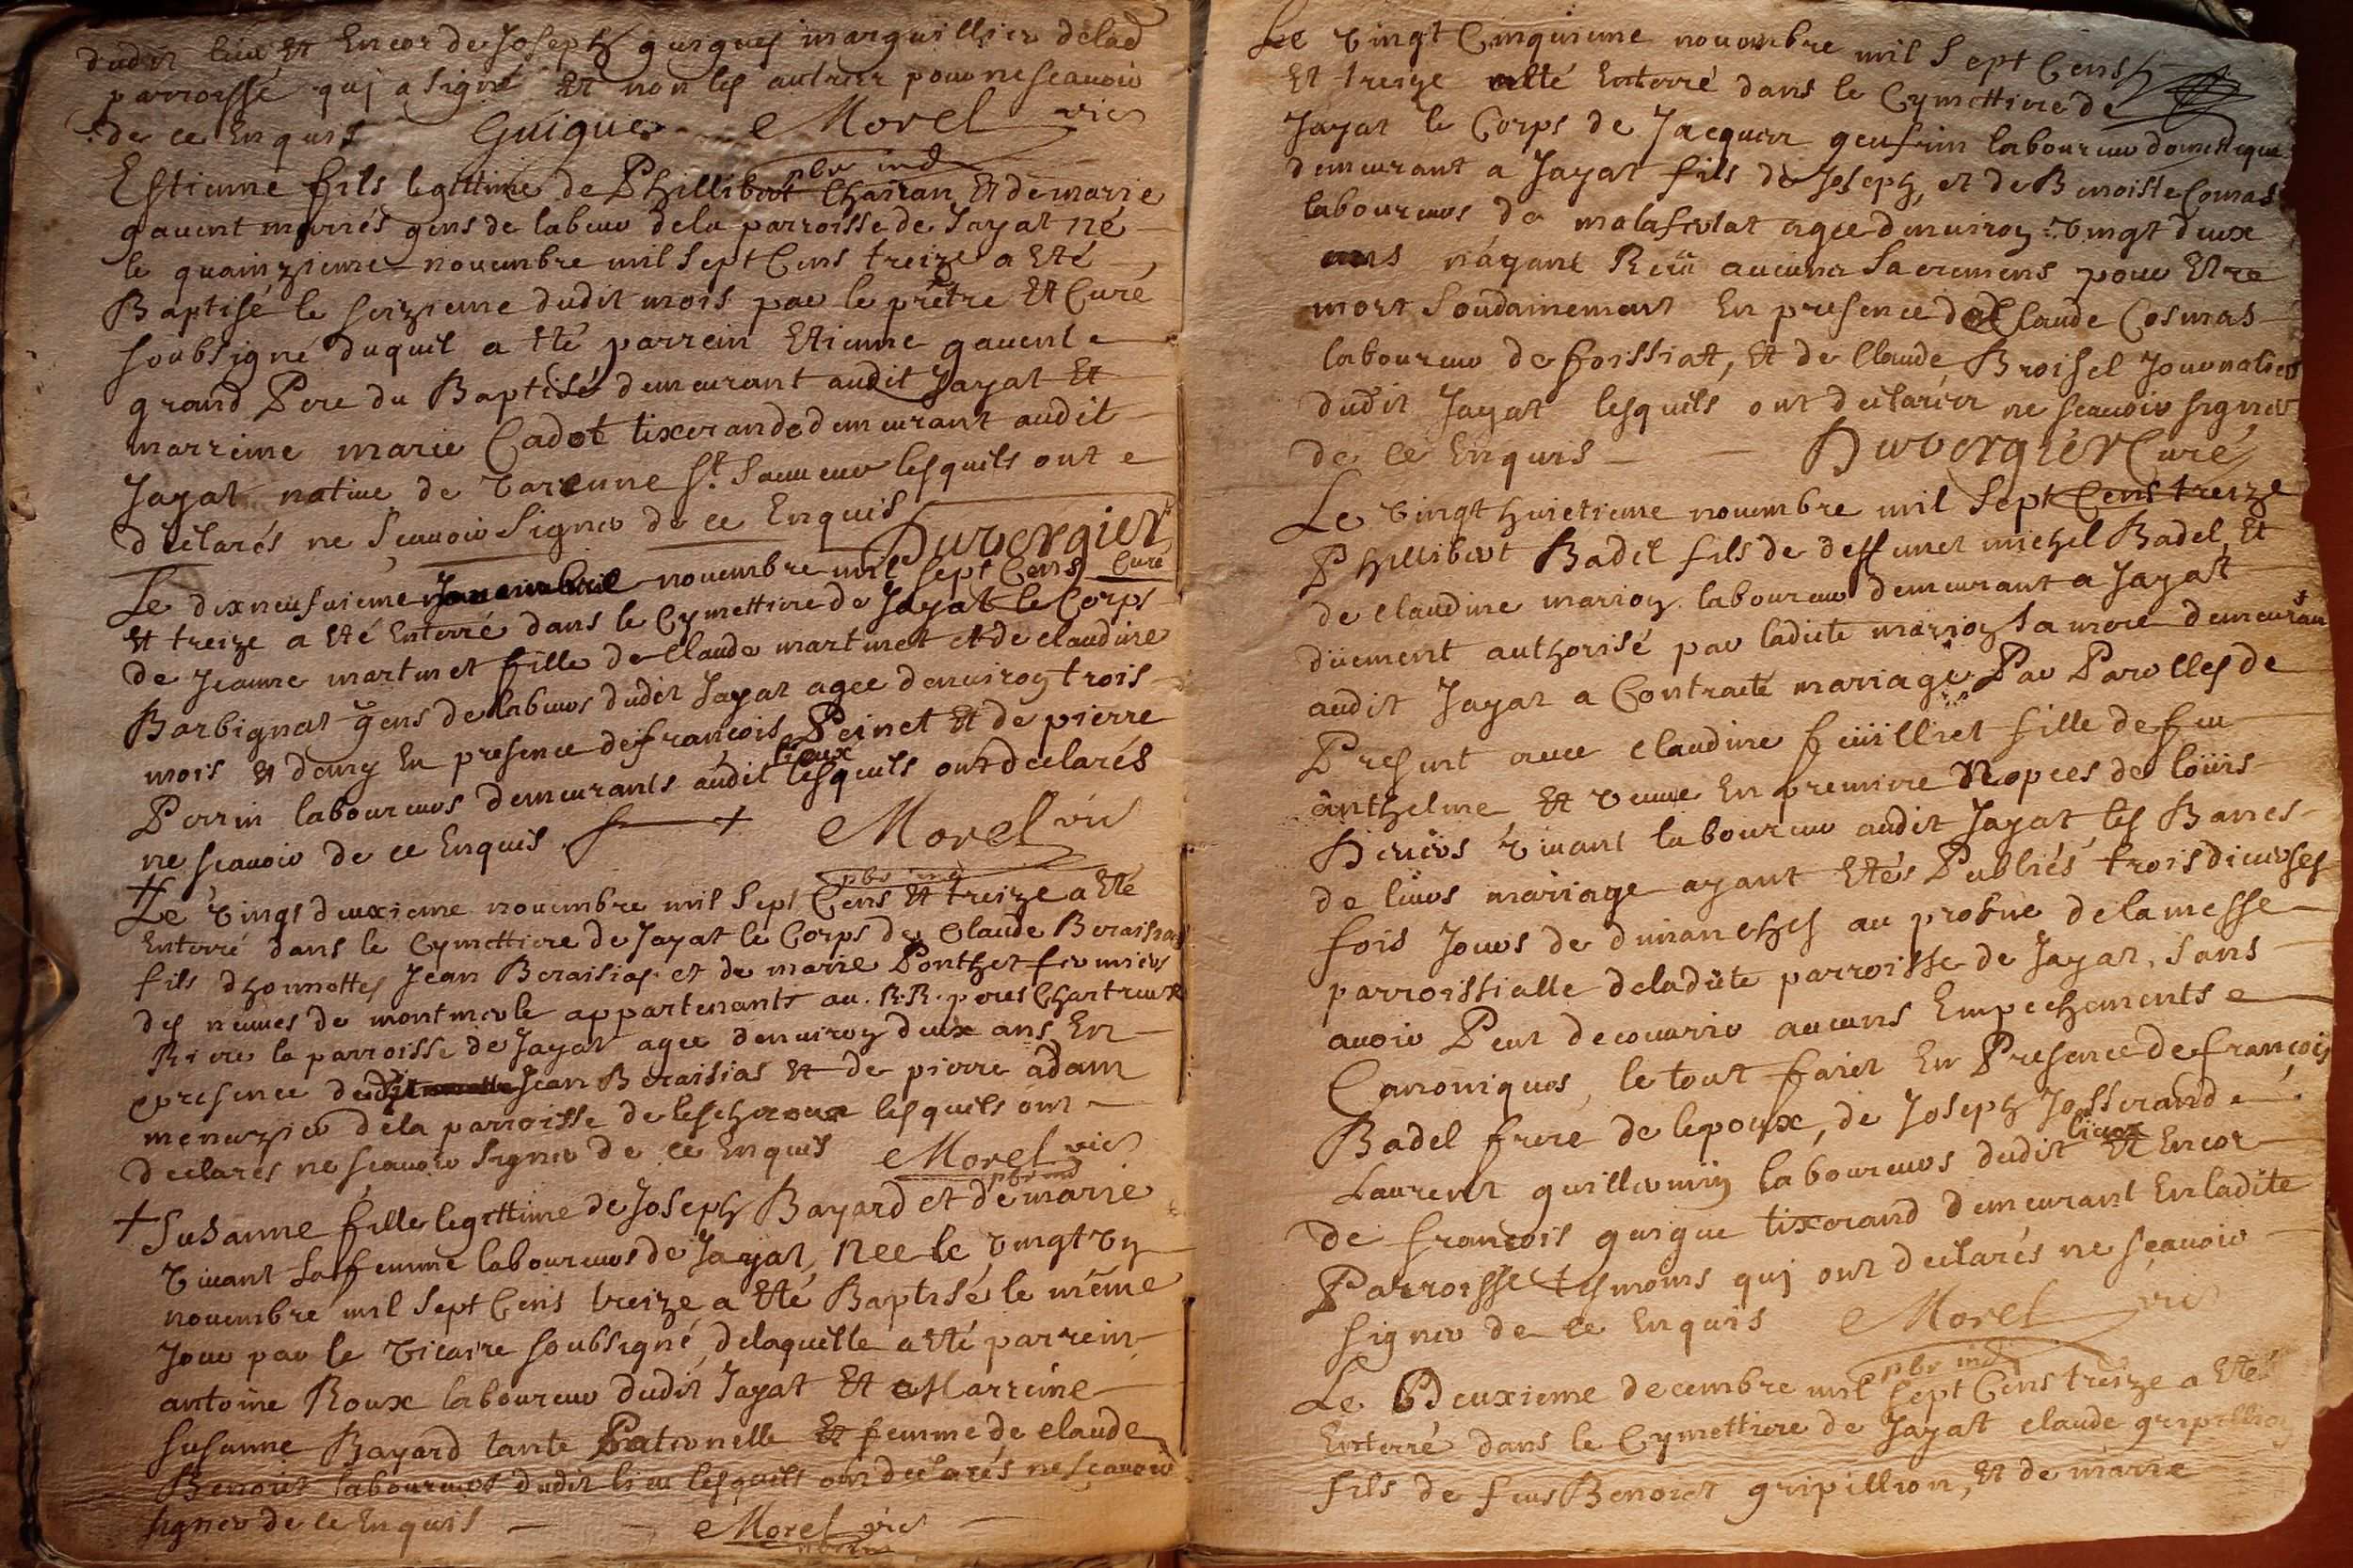 dudit lieu Et Encor de Joseph guigues marguillier delad
parroisse quj a signé Et non les autres pour ne scavoir
de ce Enquis Guigues Morel vic
pbr ind
Estienne fils legittime de Phillibert Chairan Et de marie
gauent mariés gens de labeur dela parroisse de Jayat né
le quainzieme novembre mil sept Cens treize a Eté
Baptisé le seizieme dudit mois par le prêtre Et Curé
soubsigné duquel a tté parrein Etienne gauent
grand Pere du Baptisé demeurant audit Jayat Et
marreine marie Cadot tixerande demeurant audit
Jayat native de varenne St. Sauueur lesquels ont
déclarés ne Scauoir Signer de ce Enquis Duvergier
Curé
Le dixneufuieme novembre mil sept Cens
Et treize a Eté Enterré dans le Cymettiere de Jayat le Corps
de Jeanne martinet fille de Claude martinet et de claudine
Barbignat gens de labeurs dudit Jayat agee denuiron trois
mois Et demy En presence de françois Peinet Et de pierre
Perrin laboureurs demeurants audit lieux lesquels ont declarés
ne scauoir de ce Enquis Morel vic
pbr ind
Le vingt deuxieme novembre mil sept Cens Et treize a Eté
Enterré dans le Cymettiere de Jayat le Corps de Claude Beraisias
fils dhonnettes Jean Beraisias et de marie Ponthet fermiers
des neuves de montmerle appartenants au R.R. peres Chartreux
Riere la parroisse de Jayat agee denuiron deux ans En
presence dudit Jean Beraisias Et de pierre adam
menuzier dela parroisse de lescheroux lesquels ont
declarés ne scauoir Signer de ce Enquis Morel vic
pbr ind
Susanne fille legittime de Joseph Bayard et de marie
vivant sa femme laboureurs de Jayat, Née le vingt vn
novembre mil sept Cens treize a Eté Baptisé le même
Jour par le vicaire soubsigné, delaquelle a tté parrein
antoine Roux laboureur dudit Jayat Et Marreine
susanne Bayard tante Paternelle Et femme de claude
Benoist laboureurs dudit lieu lesquels ont declarés ne scauoir
signer de ce Enquis Morel vic
Le vingt Cinquieme nouembre mil Sept Cens
Et treize a tté Enterré dans le Cymettiere de
Jayat le Corps de Jacques geufrin laboureur domestique
demeurant a Jayat fils de Joseph, et de Benoiste Comas
laboureurs de malafretat agee denuiron vingt deux
ans n'ayant Reçû aucuns Sacremens pour Etre
mort Soudainement En presence de Claude Cosmas
laboureur de foissiatt, Et de Claude Broisel Journalier
dudit Jayat lesquels ont declarer ne scauoir signer
de ce Enquis Duvergier Curé
Le vingt huietieme novembre mil Sept Cens treize
Phillibert Badel fils de deffunct michel Badel, Et
de claudine marion laboureur demeurant a Jayat
düement authorisé par ladite marion sa mere demeurant
audit Jayat a Contracté mariage Par Parolles de
Present auec claudine feüilliet fille de feu
anthelme Et veuue En premiere Nopces de loüis
vivant laboureur audit Jayat les Banes
de leurs mariage ayant Etés Publiés trois diuerses
fois Jours de dimanches au prosne de la messe
parroissialle de ladite parroisse de Jayat, Sans
auoir Peut decouurir aucuns Empechements
Canoniques, le tout faict En Presence de françois
Badel frere de lepoux, de Joseph Josserand
Laurent guillermin laboureurs dudit lieux Et Encor
de françois guigue tixerand demeurant En ladite
Parroisse tesmoins quj ont declarés ne sçauoir
signer de ce Enquis Morel vic
pbr ind
Le Deuxieme decembre mil sept Cens treize a Eté
Enterré dans le Cymettiere de Jayat claude gripillion
fils de feu Benoict gripillion, Et de marie